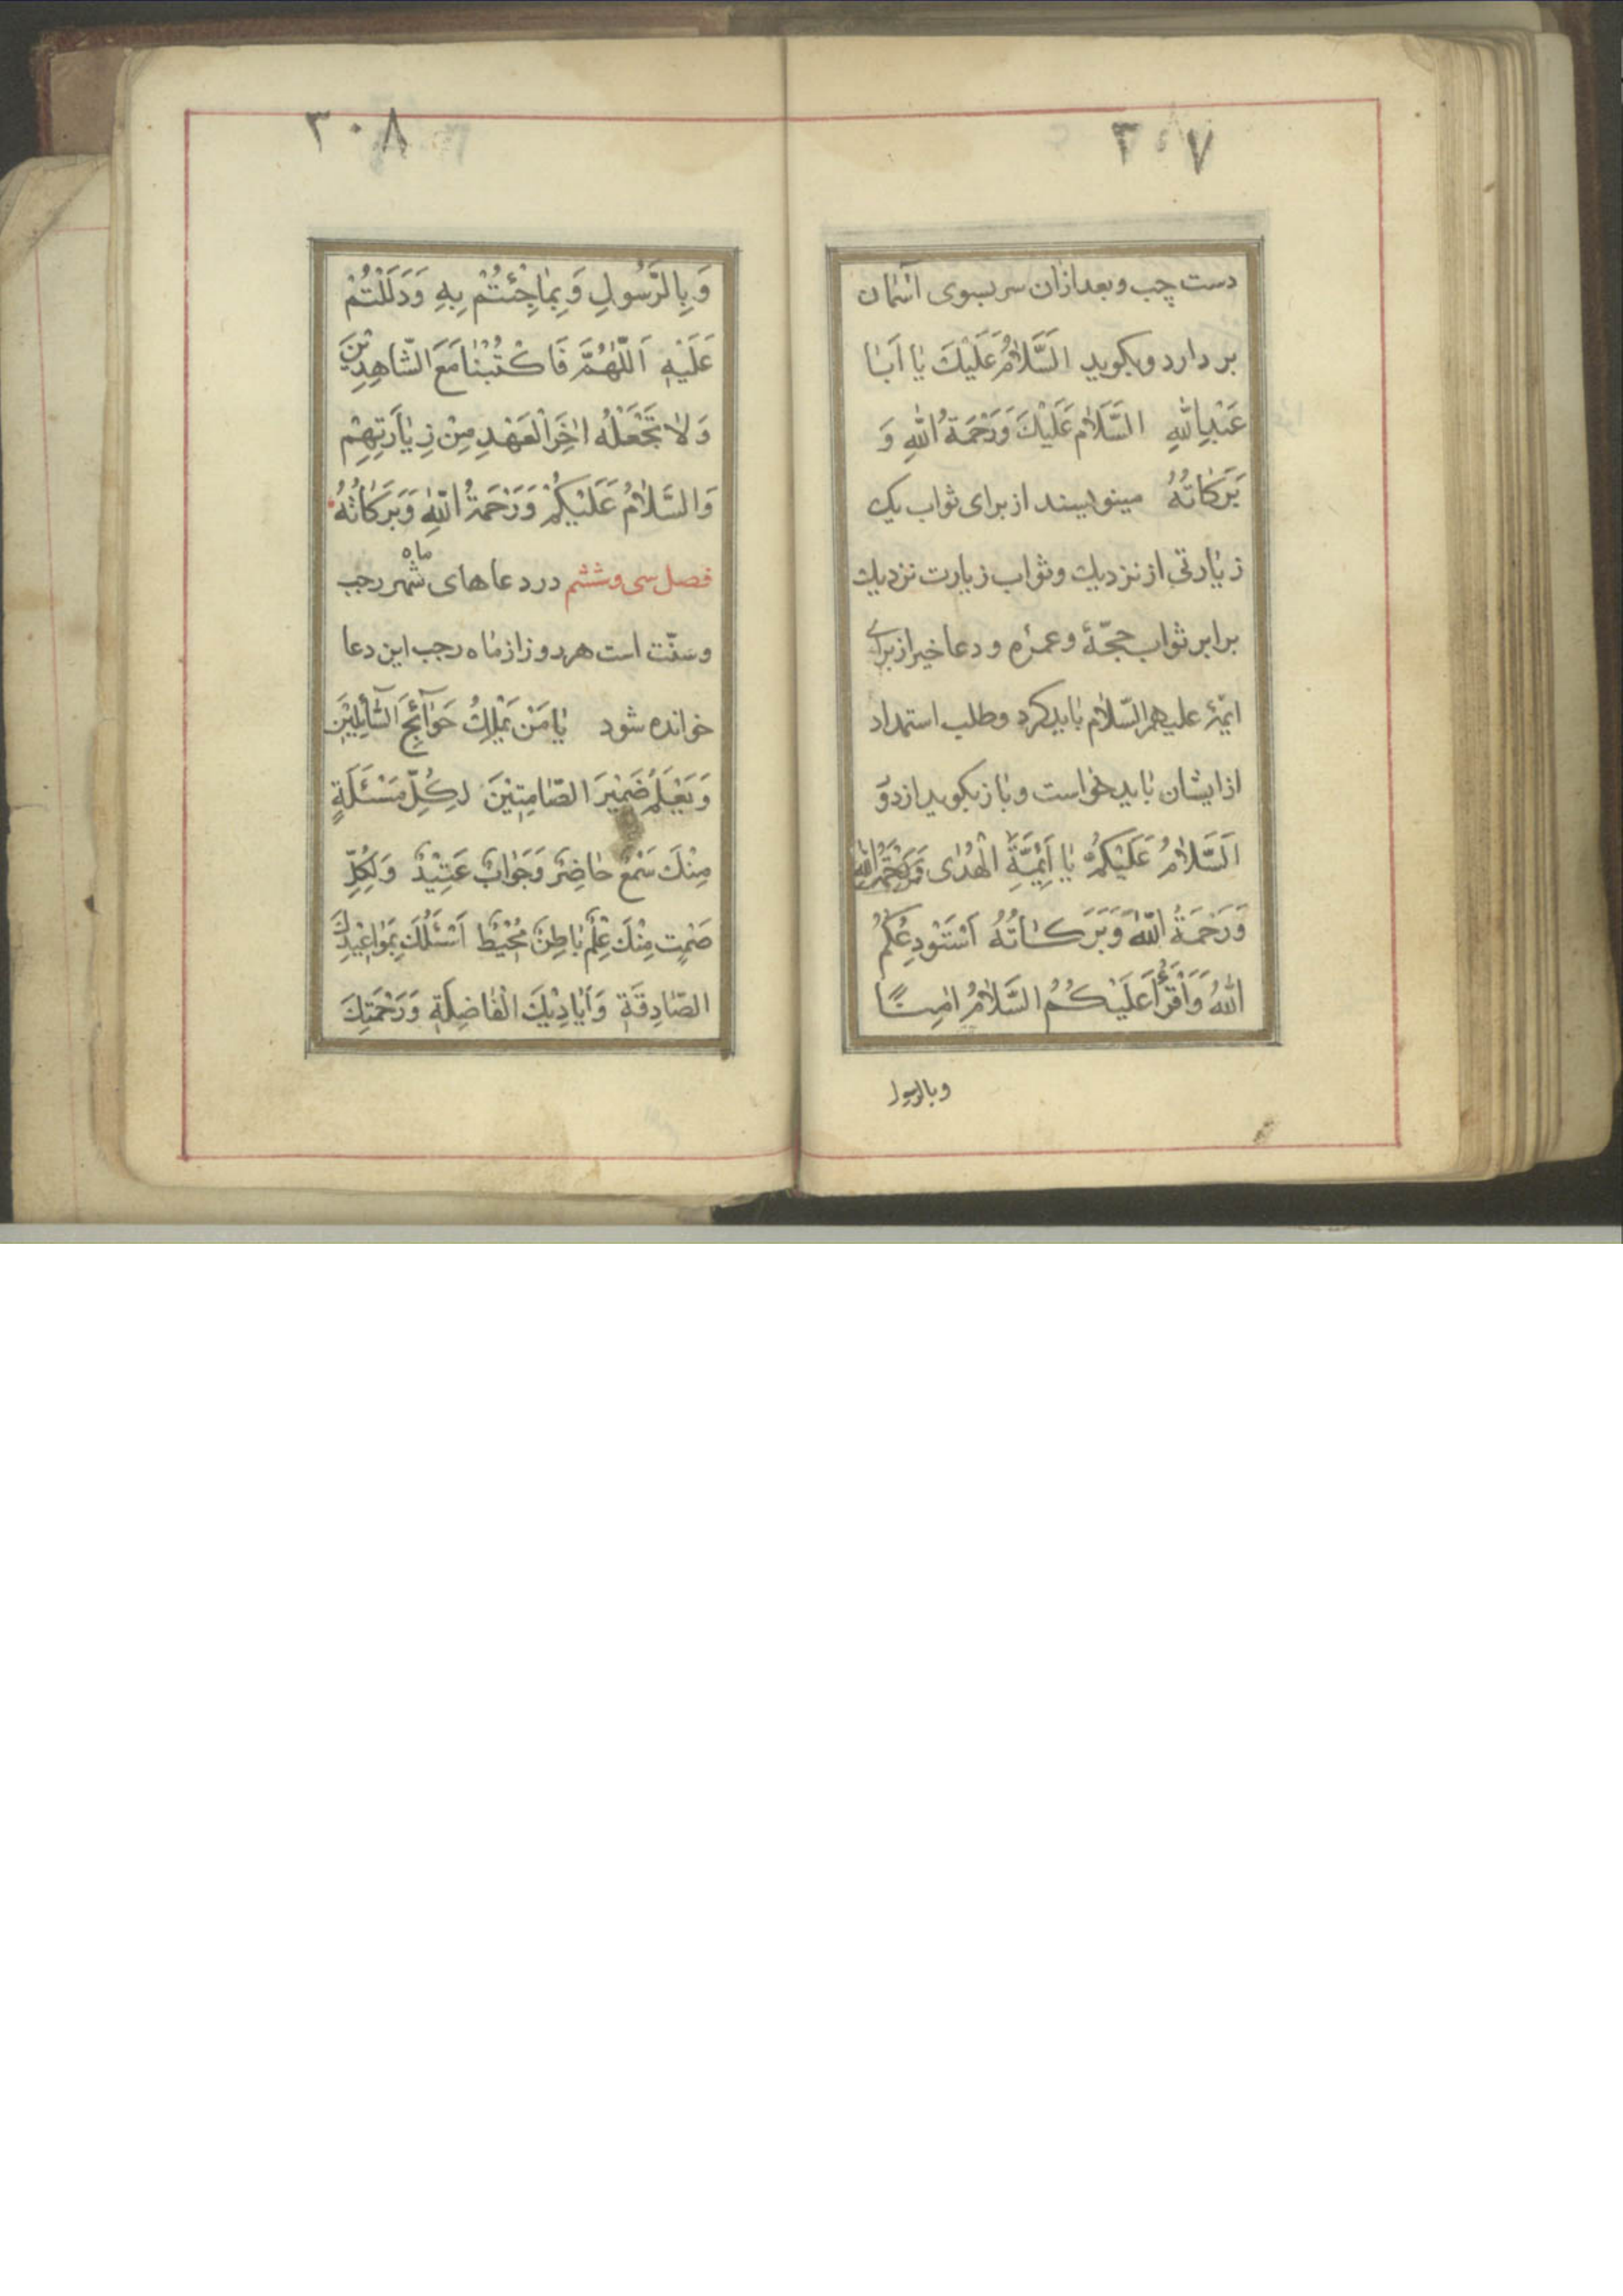 ٣٠٧
دست چب و بعد ازان سر بسوی آسمان
بر دارد و بکوید اَلسَّلامُ عَلَیْكَ یٰا اَبٰا
عَبْدِاللّٰهِ السَّلَامُ عَلَیْكَ وَرَحْمَةُ اللّٰهِ وَ
بَرَکَاتُهُ مینویسند از برای ثواب یک
زیارتی از نزدیك وثواب زیارت نزدیك
برابر ثواب حجّهٔ وعمرٔه و دعا خیر از برای
ایمّهٔ علیهم السّلام باید کرد وطلب استمداد
از ایشان باید خواست و باز بکوید از دو
اَلسَّلامُ عَلَیْکُمْ یٰا اَئِمَّةَ الْهُدٰی وَرَحْمَةُ اللّٰه
وَرَحْمَةُ اللّٰهِ وَبَرَکٰاتُهُ اَسْتَوْدِعُکُمُ
اللّٰهُ وَاَقْرَأُ عَلَیْکُمُ السَّلامُ اٰمِنّٰا
وبالرسول
٣٠٨
وَبِالرَّسُولِ وَبِمٰا جِئْتُمْ بِهِ وَدَلَلْتُمْ
عَلَیْهِ اَللّٰهُمَّ فَاکْتُبْنٰا مَعَ الشّٰاهِدِیْنَ
وَلاٰ تَجْعَلْهُ اٰخِرَ الْعَهْدِ مِنْ زِیٰارَتِهِمْ
وَالسَّلامُ عَلَیْکُمْ وَرَحْمَةُ اللّٰهِ وَبَرَکَاتُهُ
فصل سی وششم در دعاهای شهر ماه رجب
وسنّت است هر روز از ماه رجب این دعا
خوانده شود یٰا مَنْ یَمْلِكُ حَوٰآئِجَ السّٰآئِلِیْنَ
وَیَعْلَمُ ضَمِیْرَ الصّٰامِتِیْنَ لِکُلِّ مَسْئَلَةٍ
مِنْكَ سَمْعٌ حٰاضِرٌ وَجَوٰابٌ عَتِیْدٌ وَلِکُلِّ
صَمْتٍ مِنْكَ عِلْمٌ بٰاطِنٌ مُحِیْطٌ اَسْئَلُكَ بِمَوٰاعِیْدِكَ
الصّٰادِقَةِ وَاَیٰادِیْكَ الْفٰاضِلَةِ وَرَحْمَتِكَ